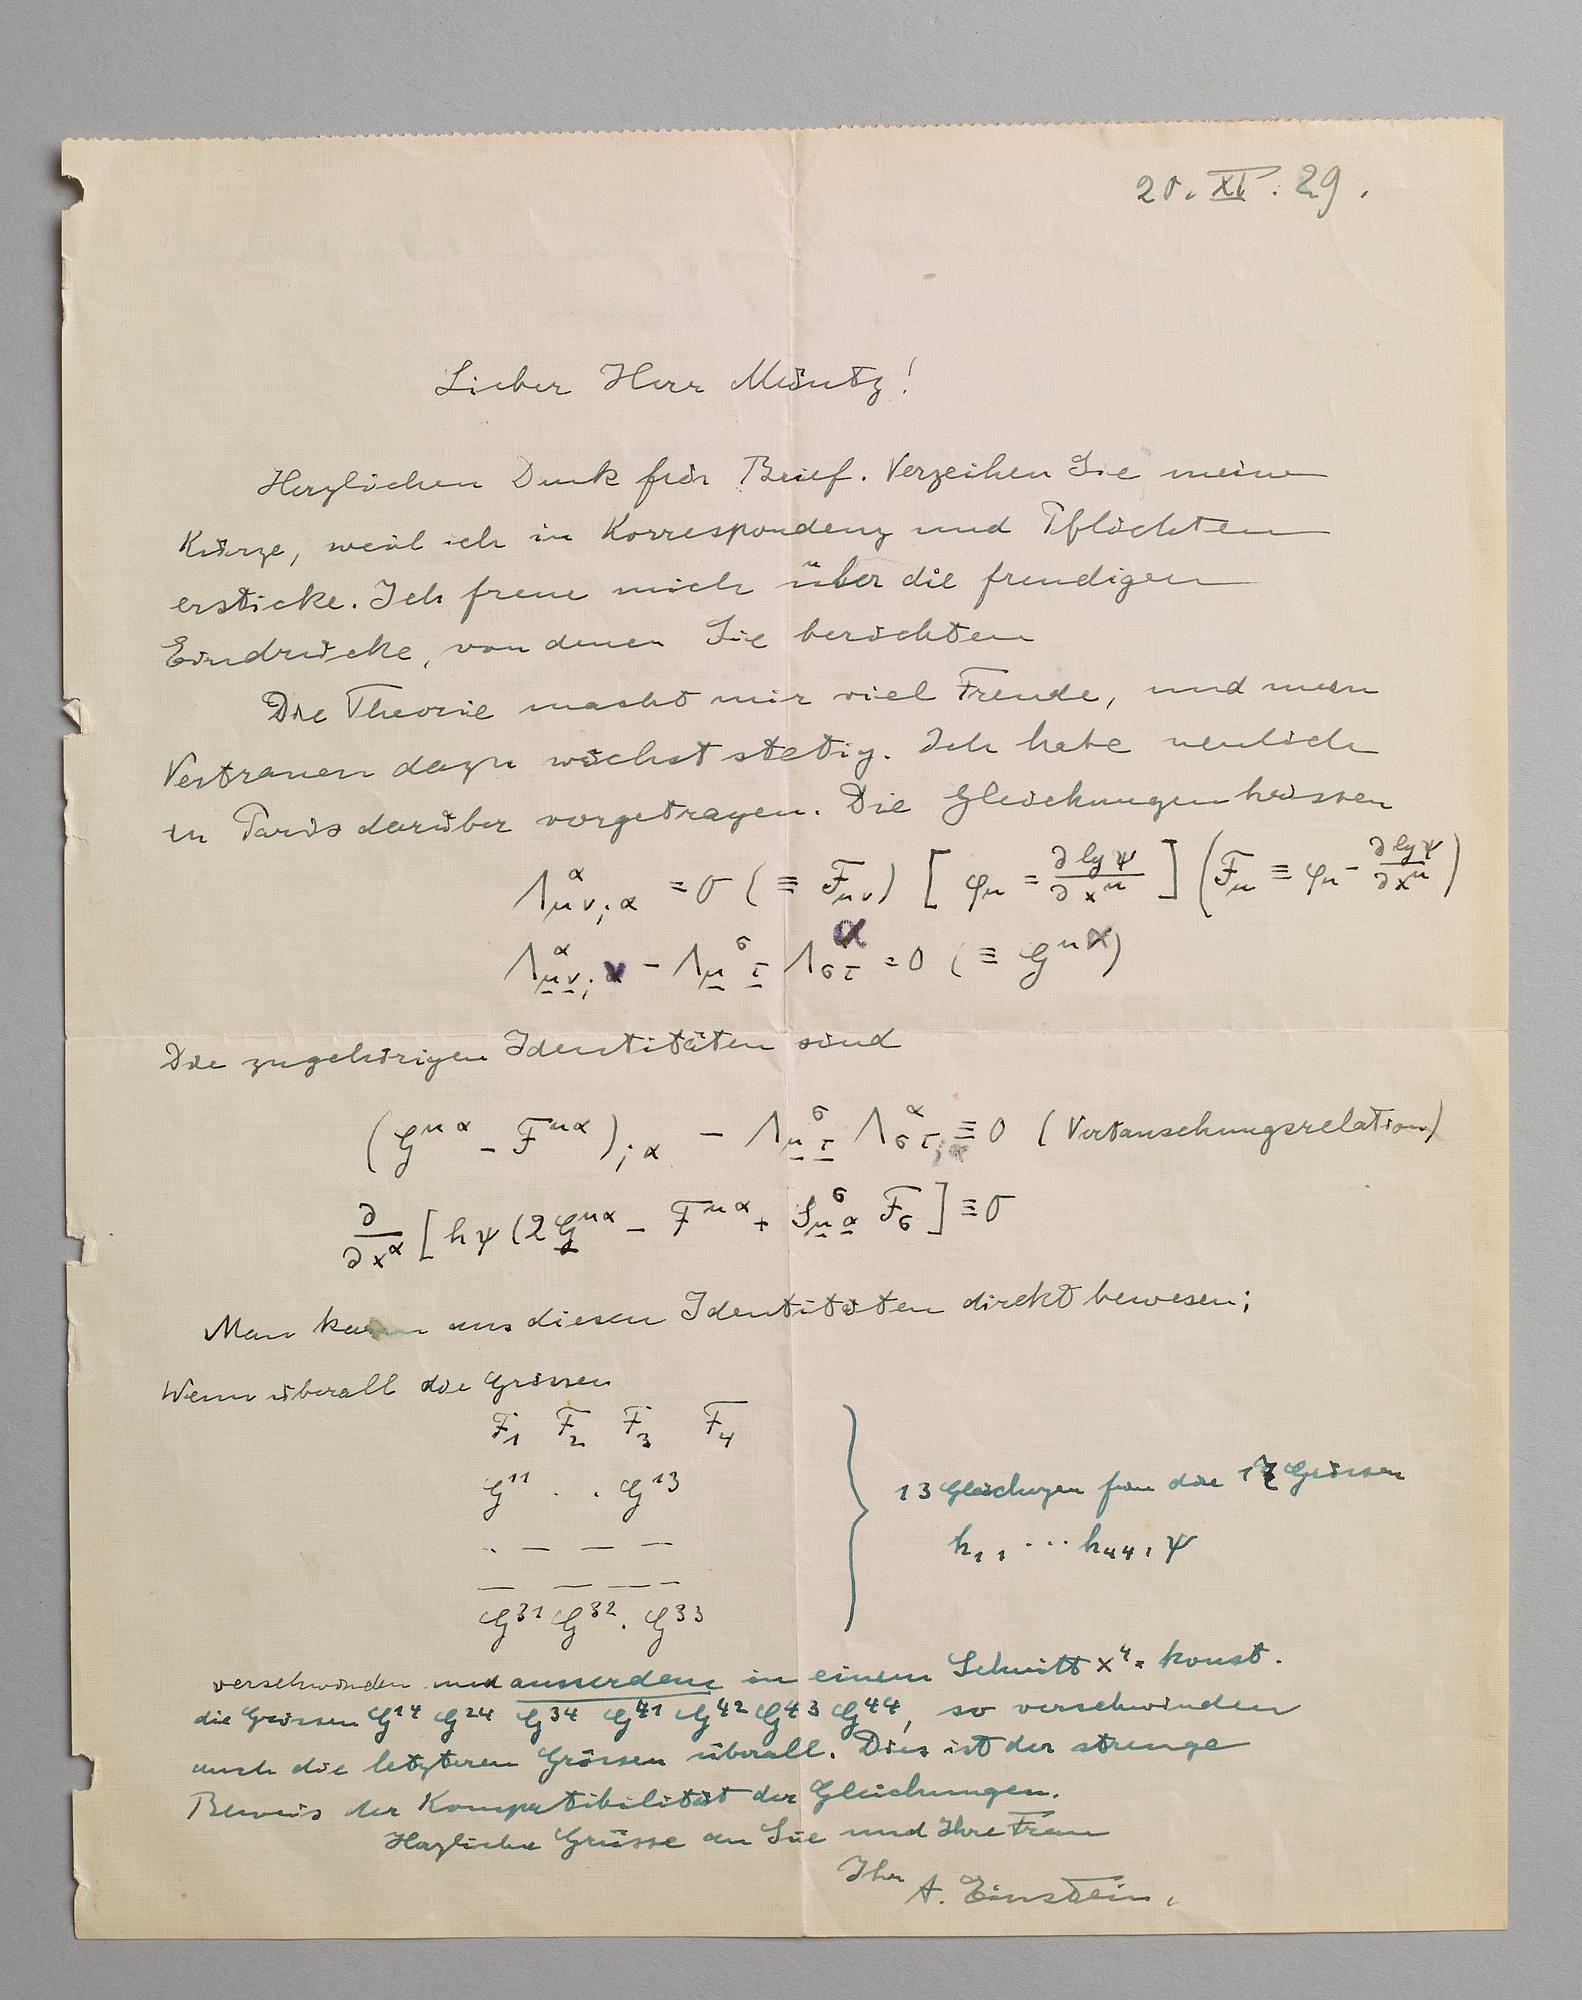 20. XI. 29.
Lieber Herr Müntz!
Herzlichen Dank für Brief. Verzeihen Sie meine
Kürze, weil ich in Korrespondenz und Pflichten
ersticke. Ich freue mich über die freudigen
Eindrücke, von denen Sie berichten
Die Theorie macht mir viel Freude, und mein
Vertrauen dazu wächst stetig. Ich habe neulich
in Paris darüber vorgetragen. Die Gleichungen heissen
Λ^α_{μν;α} = 0 (≡ F_{μν}) [φ_μ = ∂lgψ/∂x^μ] (F_μ ≡ φ_μ - ∂lgψ/∂x^μ)
Λ^α_{μν;ν} - Λ_μ^σ_τ Λ^α_{στ} = 0 (≡ G^{μα})
Die zugehörigen Identitäten sind
(G^{μα} - F^{μα})_{;α} - Λ_μ^σ_τ Λ^α_{στ} ≡ 0 (Vertauschungsrelation)
∂/∂x^α [hψ(2G^{μα} - F^{μα} + S_μ^σ_α F_σ] ≡ 0
Man kann aus diesen Identitäten direkt beweisen;
Wenn überall die Grössen
F_1 F_2 F_3 F_4
G^{11} . . G^{13}
G^{31} G^{32} . G^{33}
13 Gleichungen für die 17 Grössen
h_{11} ... h_{44}, ψ
verschwinden und ausserdem in einem Schnitt x^4 = konst.
die Grössen G^{14} G^{24} G^{34} G^{41} G^{42} G^{43} G^{44}, so verschwinden
auch die letzteren Grössen überall. Dies ist der strenge
Beweis der Kompatibilität der Gleichungen.
Herzliche Grüsse an Sie und Ihre Frau
Ihr
A. Einstein.